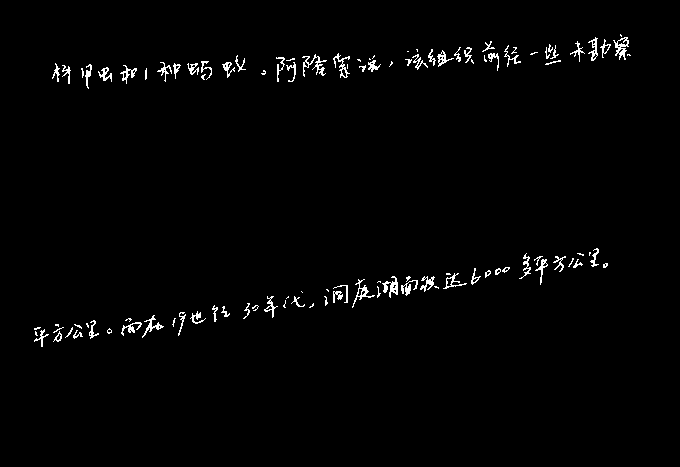 种甲虫和1种蚂蚁。阿隆索说，该组织前往一些未勘察
平方公里。而在19世纪30年代，洞庭湖面积达6000多平方公里。